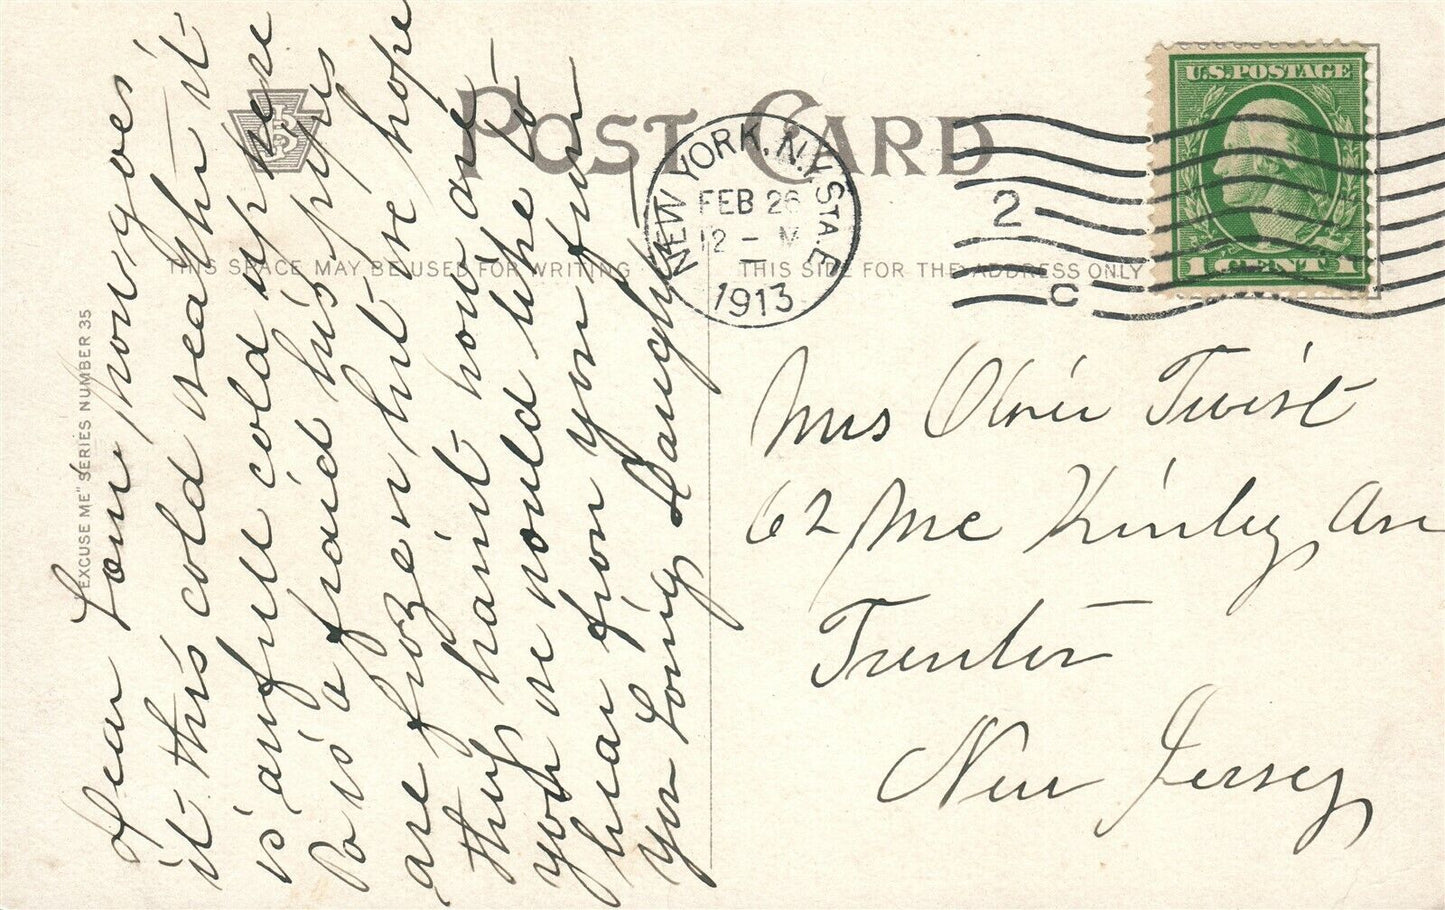 POST CARD
U.S. POSTAGE
1 CENT 1
NEW YORK, N.Y. STA. E
FEB 26
12 - M
1913
2
C
THIS SPACE MAY BE USED FOR WRITING
THIS SIDE FOR THE ADDRESS ONLY
"EXCUSE ME" SERIES NUMBER 35
Dear how goes
it this cold weather it
is awfull cold up here
Pa is a fraid his pipes
are frozen but we hope
they haint how are
you we would like to
hear from you from
your Loving Daughter
Mrs Oliver Twist
62 Mc Kinley Ave
Trenton
New Jersey